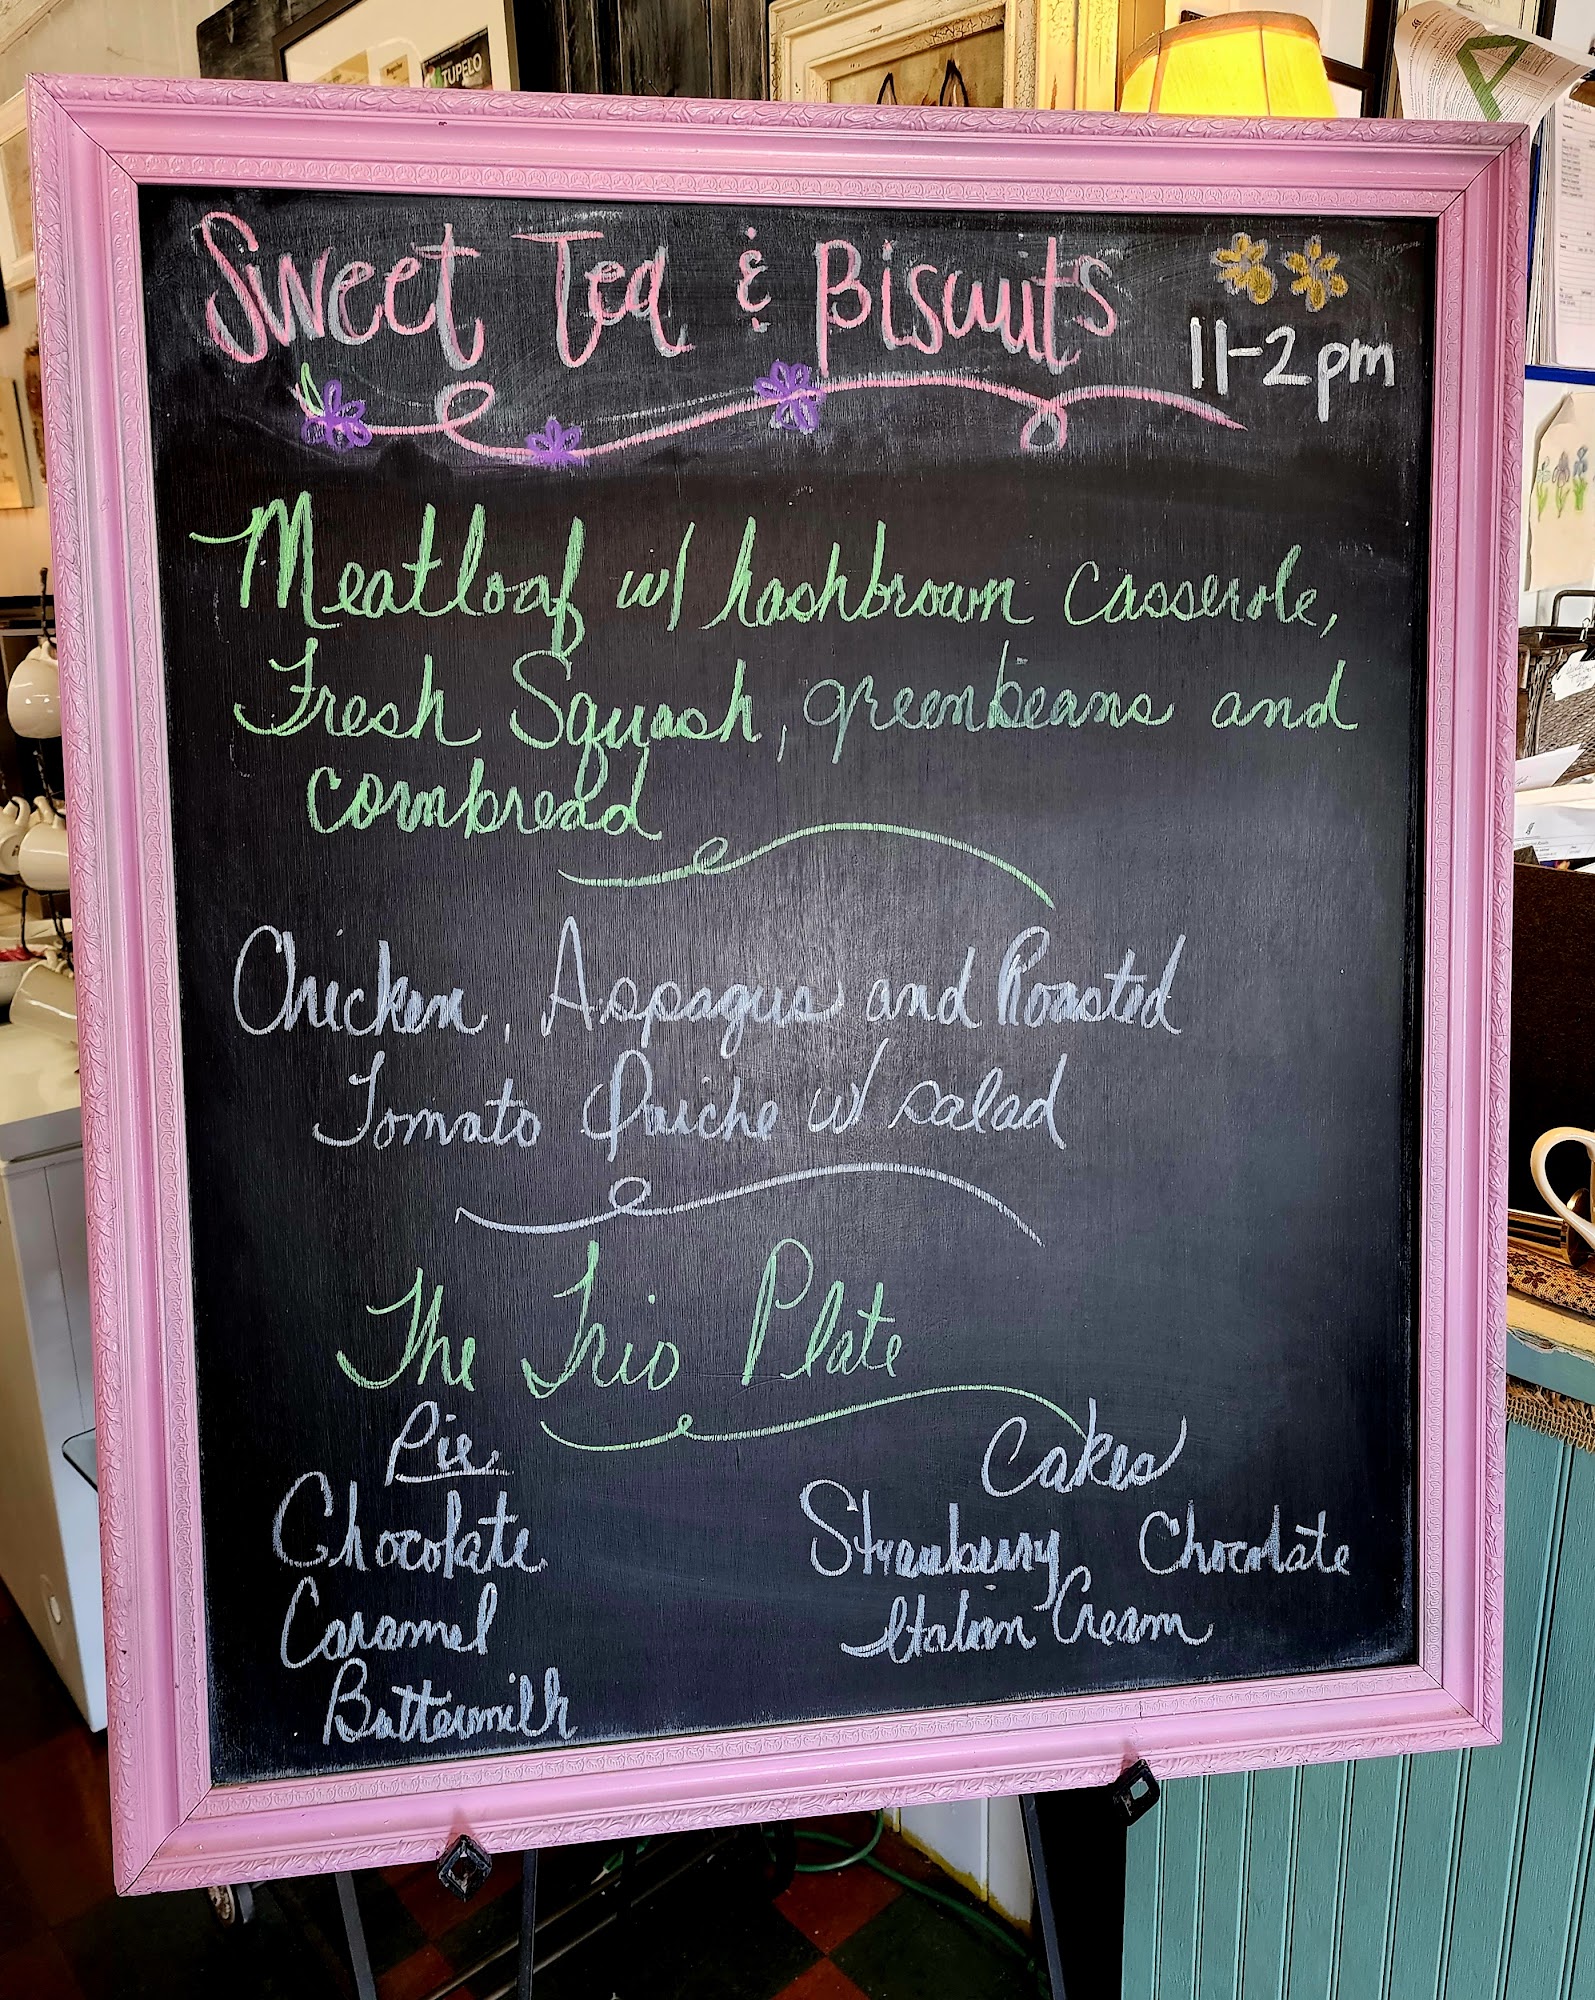 TUPELO
A
Sweet Tea & Biscuits
11-2pm
Meatloaf w/ hashbrown casserole,
Fresh Squash, greenbeans and
cornbread
Chicken, Aspagus and Roasted
Tomato Quiche w/ salad
The Trio Plate
Pie
Chocolate
Caramel
Buttermilk
Cakes
Strawberry Chocolate
Italian Cream